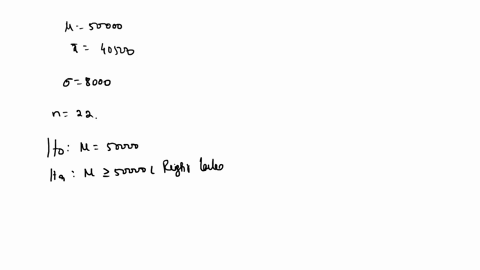 μ = 50000
x̄ = 40500
σ = 8000
n = 22.
H0: μ = 50000
Ha: μ ≥ 50000 ( Right